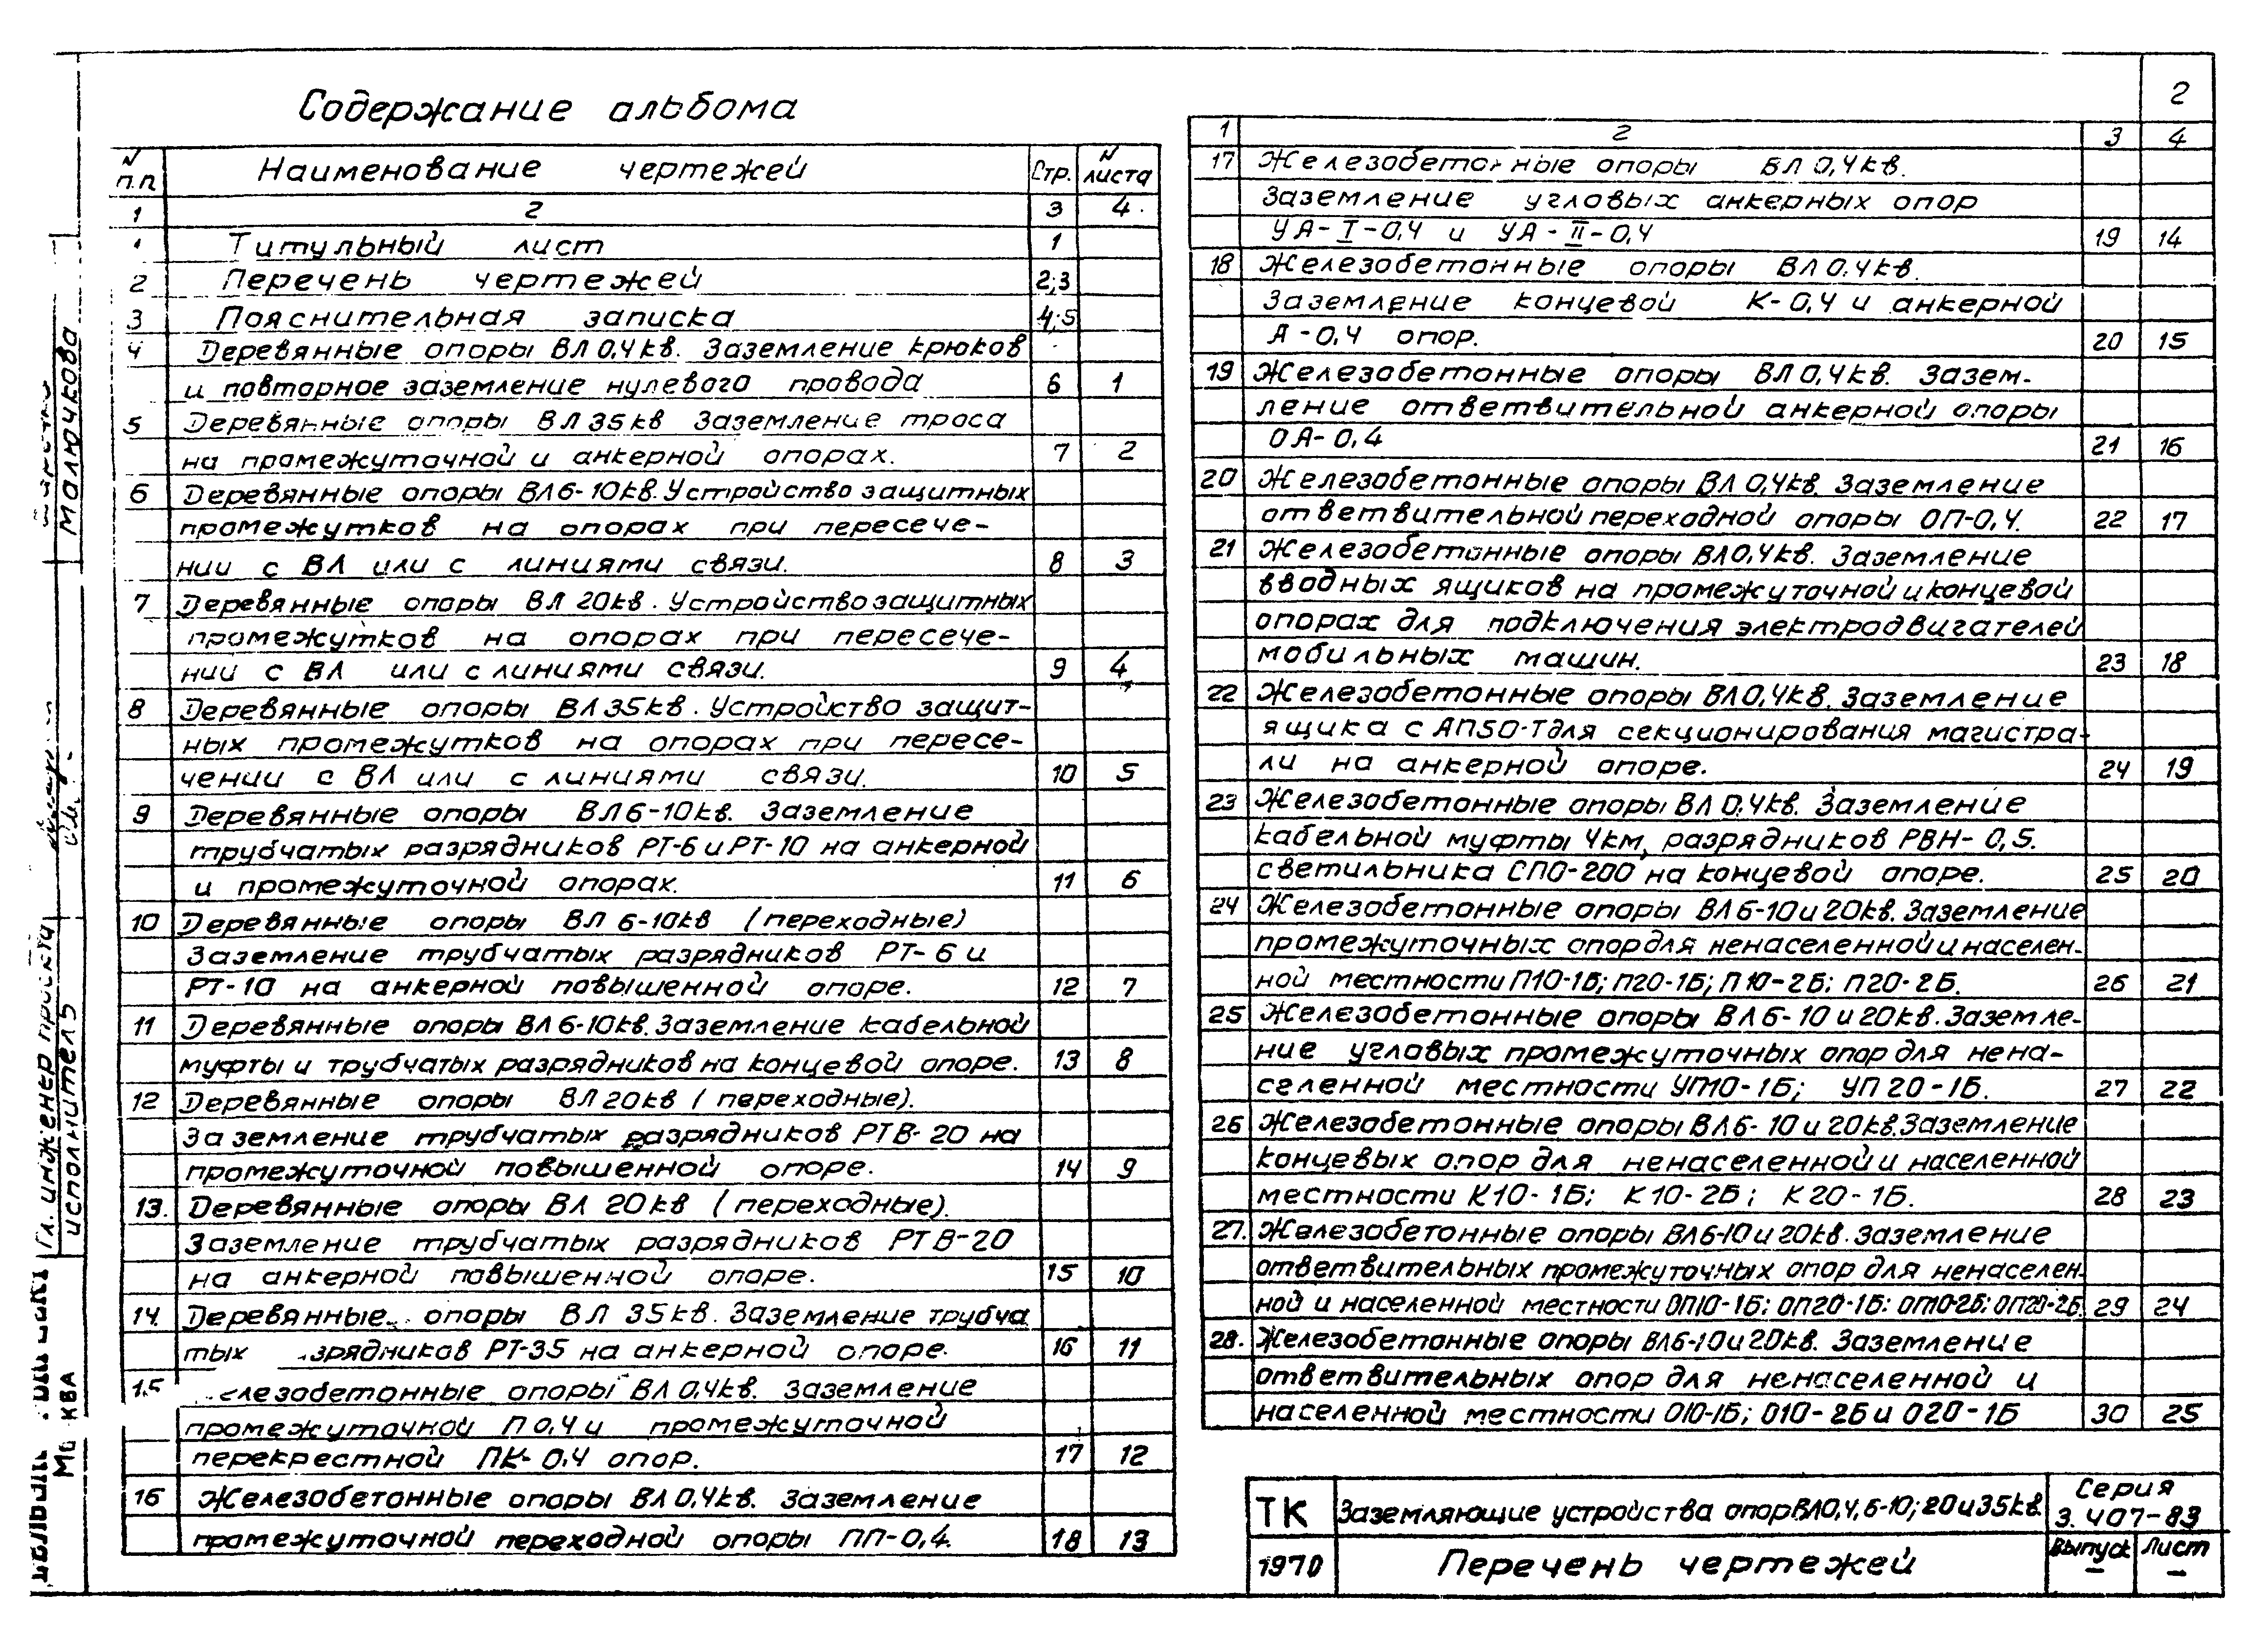 2
Содержание альбома
N п.п. Наименование чертежей Стр. N листа
1 2 3 4
1 Титульный лист 1
2 Перечень чертежей 2;3
3 Пояснительная записка 4;5
4 Деревянные опоры ВЛ 0,4кв. Заземление крюков
и повторное заземление нулевого провода 6 1
5 Деревянные опоры ВЛ 35кв Заземление троса
на промежуточной и анкерной опорах. 7 2
6 Деревянные опоры ВЛ 6-10кв. Устройство защитных
промежутков на опорах при пересече-
нии с ВЛ или с линиями связи. 8 3
7 Деревянные опоры ВЛ 20кв. Устройство защитных
промежутков на опорах при пересече-
нии с ВЛ или с линиями связи. 9 4
8 Деревянные опоры ВЛ 35кв. Устройство защит-
ных промежутков на опорах при пересе-
чении с ВЛ или с линиями связи. 10 5
9 Деревянные опоры ВЛ 6-10кв. Заземление
трубчатых разрядников РТ-6 и РТ-10 на анкерной
и промежуточной опорах. 11 6
10 Деревянные опоры ВЛ 6-10кв (переходные)
Заземление трубчатых разрядников РТ-6 и
РТ-10 на анкерной повышенной опоре. 12 7
11 Деревянные опоры ВЛ 6-10кв. Заземление кабельной
муфты и трубчатых разрядников на концевой опоре. 13 8
12 Деревянные опоры ВЛ 20кв (переходные).
Заземление трубчатых разрядников РТВ-20 на
промежуточной повышенной опоре. 14 9
13. Деревянные опоры ВЛ 20кв (переходные).
Заземление трубчатых разрядников РТВ-20
на анкерной повышенной опоре. 15 10
14. Деревянные опоры ВЛ 35кв. Заземление трубча
тых зрядников РТ-35 на анкерной опоре. 16 11
15 лезобетонные опоры ВЛ 0,4кв. Заземление
промежуточной П 0,4 и промежуточной
перекрестной ПК-0,4 опор. 17 12
16 Железобетонные опоры ВЛ 0,4кв. Заземление
промежуточной переходной опоры ПП-0,4. 18 13
1 2 3 4
17 Железобетонные опоры ВЛ 0,4кв.
Заземление угловых анкерных опор
УА-I-0,4 и УА-II-0,4 19 14
18 Железобетонные опоры ВЛ 0,4кв.
Заземление концевой К-0,4 и анкерной
А-0,4 опор. 20 15
19 Железобетонные опоры ВЛ 0,4кв. Зазем-
ление ответвительной анкерной опоры
ОА-0,4 21 16
20 Железобетонные опоры ВЛ 0,4кв. Заземление
ответвительной переходной опоры ОП-0,4. 22 17
21 Железобетонные опоры ВЛ 0,4кв. Заземление
вводных ящиков на промежуточной и концевой
опорах для подключения электродвигателей
мобильных машин. 23 18
22 Железобетонные опоры ВЛ 0,4кв. Заземление
ящика с АП50-Т для секционирования магистра-
ли на анкерной опоре. 24 19
23 Железобетонные опоры ВЛ 0,4кв. Заземление
кабельной муфты 4км, разрядников РВН-0,5.
светильника СПО-200 на концевой опоре. 25 20
24 Железобетонные опоры ВЛ 6-10 и 20кв. Заземление
промежуточных опор для ненаселенной и населен-
ной местности П10-1Б; П20-1Б; П10-2Б; П20-2Б. 26 21
25 Железобетонные опоры ВЛ 6-10 и 20кв. Заземле-
ние угловых промежуточных опор для нена-
селенной местности УП10-1Б; УП20-1Б. 27 22
26 Железобетонные опоры ВЛ 6-10 и 20кв. Заземление
концевых опор для ненаселенной и населенной
местности К10-1Б; К10-2Б; К20-1Б. 28 23
27. Железобетонные опоры ВЛ 6-10 и 20кв. Заземление
ответвительных промежуточных опор для ненаселен-
ной и населенной местности ОП10-1Б; ОП20-1Б; ОП10-2Б; ОП20-2Б. 29 24
28. Железобетонные опоры ВЛ 6-10 и 20кв. Заземление
ответвительных опор для ненаселенной и
населенной местности О10-1Б; О10-2Б и О20-1Б 30 25
ТК Заземляющие устройства опор ВЛ 0,4, 6-10; 20 и 35кв. Серия 3.407-83
1970 Перечень чертежей Выпуск – Лист –
Гл. инженер проекта
исполнитель
Малючкова